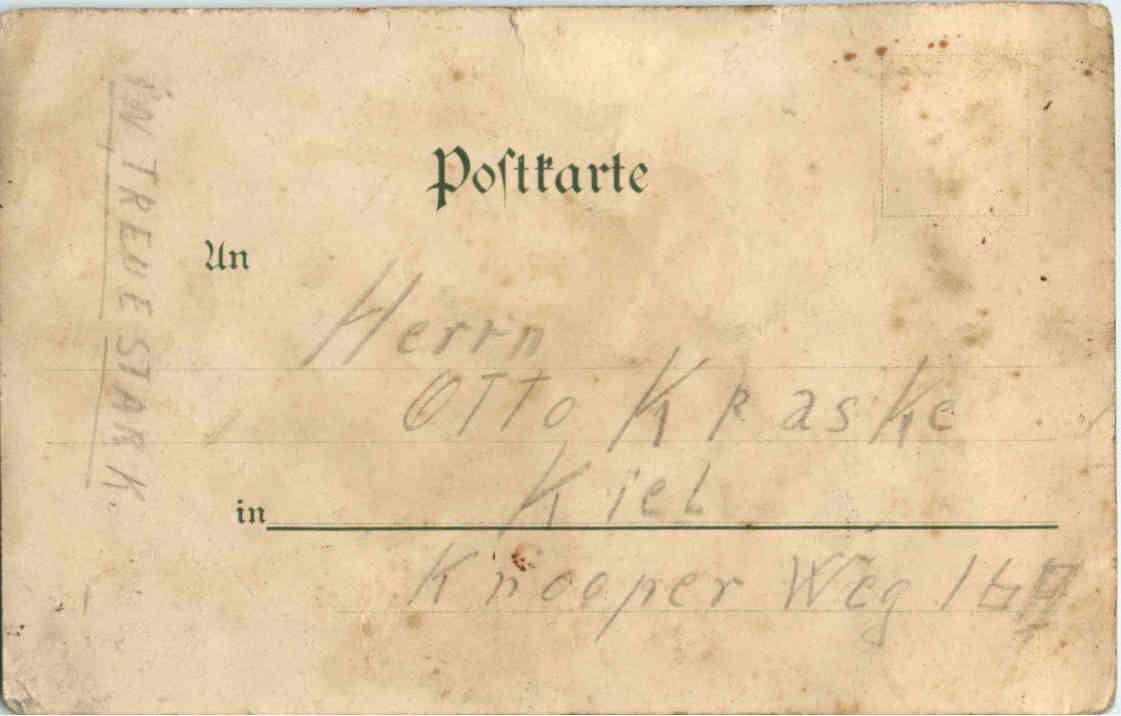 Postkarte
An
Herrn
Otto Kraske
Kiel
in
Knooper Weg
IN TREUE STARK